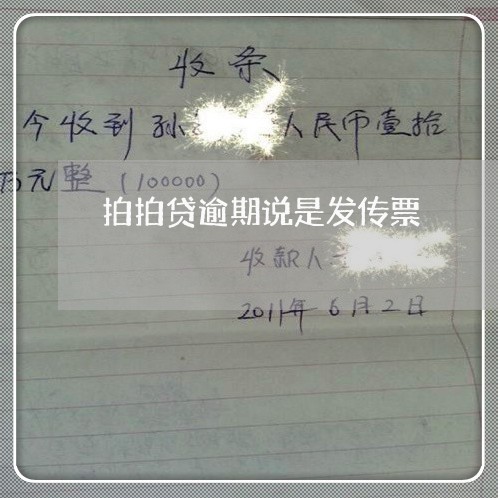 收条
今收到孙 人民币壹拾
万元整(100000)
拍拍贷逾期说是发传票
收款人
2011年6月2日